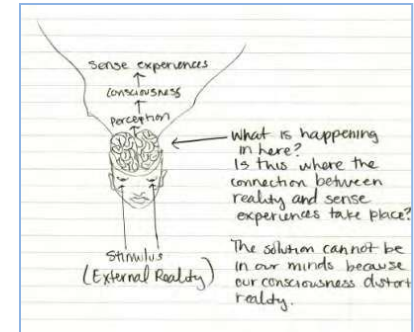 Sense experiences
Consciousness
Perception
What is happening
in here?
Is this where the
connection between
reality and sense
experiences take place?
Stimulus
(External Reality)
The solution cannot be
in our minds because
our consciousness distort
reality.